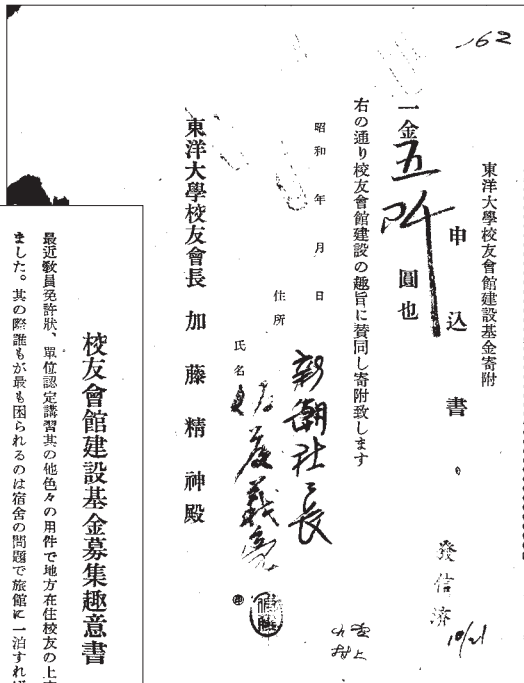 162
東洋大學校友會館建設基金寄附
申込書
一金五阡圓也
右の通り校友會館建設の趣旨に賛同し寄附致します
昭和　年　月　日
住所
新潮社々長
氏名 佐藤義亮
東洋大學校友會長　加藤精神殿
發信濟
10/21
校友會館建設基金募集趣意書
最近敎員免許狀、單位認定講習其の他色々の用件で地方在住校友の上
ました。其の際誰もが最も困られるのは宿舍の問題で旅館に一泊すれば